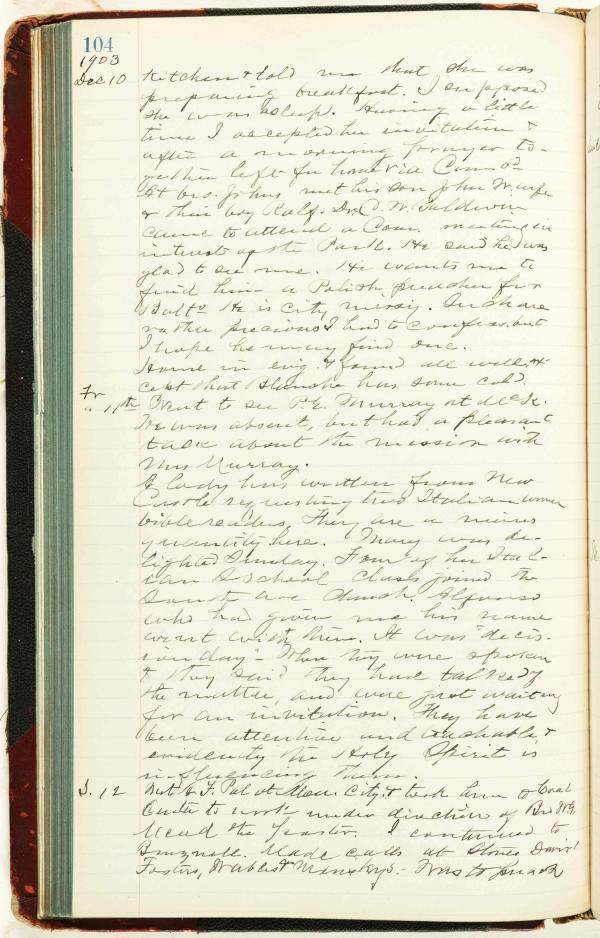 104
1903
Dec 10 Kitchen & told me that she was
preparing breakfast. I supposed
she was asleep. Having a little
time I accepted her invitation &
after a morning prayer to-
gether left for home via
At bro. Johns met his son John W. wife
& their boy Ralf. Dr. C. W. Baldwin
came to attend a Com. meeting in
interest of the Park. He said he was
glad to see me. He wants me to
find him a Polish preacher for
Balto. He is city missy. Such are
rather precious I had to confess, but
I hope he may find one.
Home in evig. & found all well, ex-
cept that Blanche has some cold.
Fr
" 11th Went to see P. E. Murray at
He was absent, but had a pleasant
talk about the mission with
Mrs Murray.
A lady has written from New
Castle requesting two Italian women
bible readers. They are a minus
quantity here. Mary was de-
lighted Sunday. Four of her Ital-
ian S school class joined the
South ave Church. Alfonso
who had given me his name
went with them. It was "decis-
ion day". When they were spoken
to they said they had talked of
the matter, and were just waiting
for an invitation. They have
been attentive and teachable, &
evidently the Holy Spirit is
influencing them.
S. 12 Met at City & took him to Coal
Center to work under direction of Bro W. G.
Mead the Pastor. I continued to
Made calls at Stones Davis'
Fosters, & Was to preach